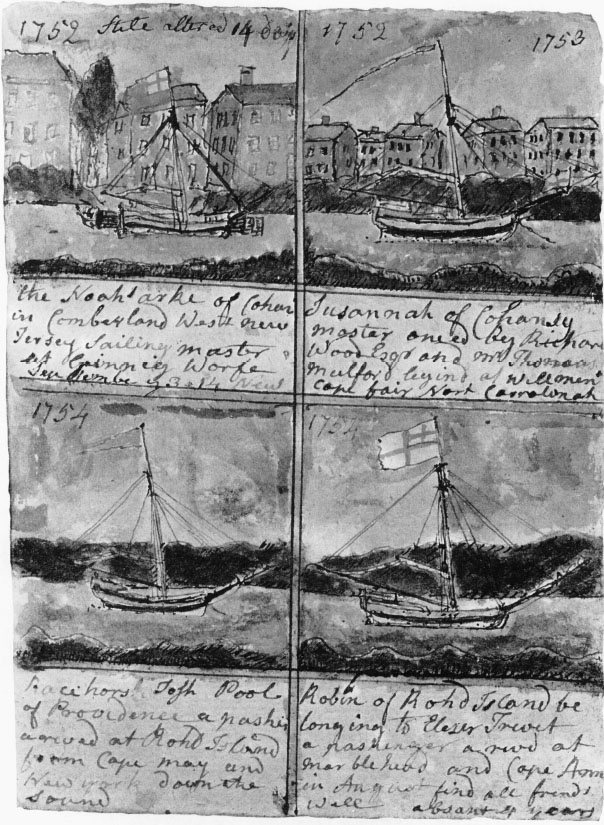 1752 Stile altered 14 day
the Noahs arke of Cohan
in Comberland West new
Jersey Sailing master
at Worfe
3 14 New
1752 1753
Susannah of Cohansy
master oned by Richard
Wood Esqr and mr Thomas
Mulford leyind at Willmen
Cape fair Nort Carrolonah
1754
Racehorse Josh Pool
of Providence a pashe
arived at Rohd Island
form Cape may and
New York down the
Sound
1754
Robin of Rohd Island be
longing to Elezer Trevet
a passenger arivd at
marblehead and Cape Ann
in August find all frends
Well absant 4 years